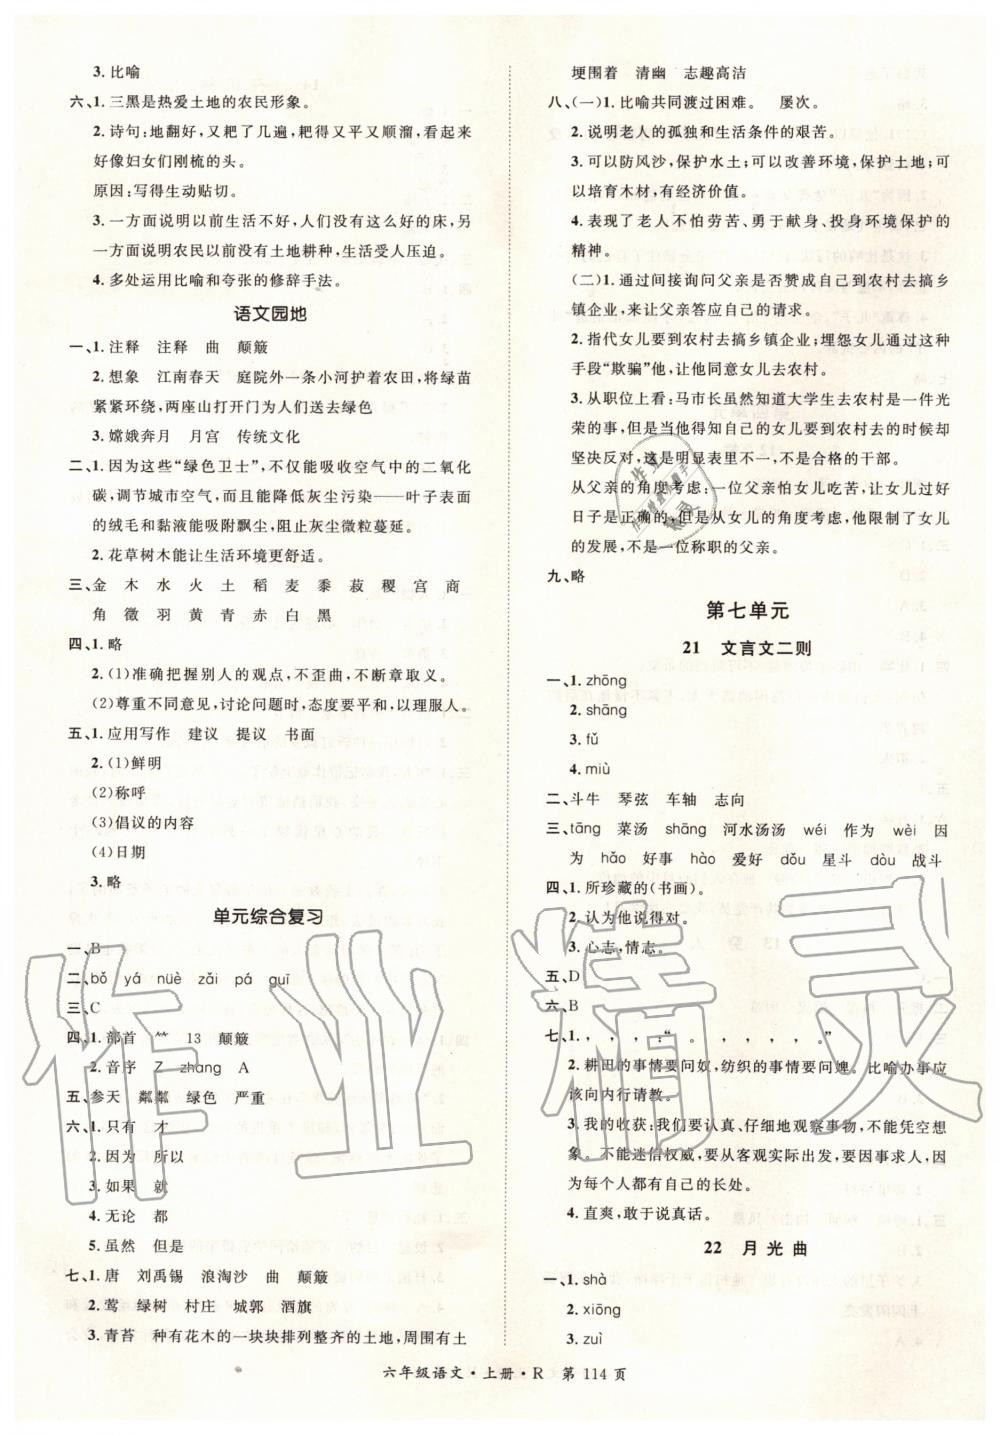 3. 比喻
六、1. 三黑是热爱土地的农民形象。
2. 诗句:地翻好,又耙了几遍,耙得又平又顺溜,看起来
好像妇女们刚梳的头。
原因:写得生动贴切。
3. 一方面说明以前生活不好,人们没有这么好的床,另
一方面说明农民以前没有土地耕种,生活受人压迫。
4. 多处运用比喻和夸张的修辞手法。
语文园地
一、1. 注释 注释 曲 颠簸
2. 想象 江南春天 庭院外一条小河护着农田,将绿苗
紧紧环绕,两座山打开门为人们送去绿色
3. 嫦娥奔月 月宫 传统文化
二、1. 因为这些“绿色卫士”,不仅能吸收空气中的二氧化
碳,调节城市空气,而且能降低灰尘污染——叶子表面
的绒毛和黏液能吸附飘尘,阻止灰尘微粒蔓延。
2. 花草树木能让生活环境更舒适。
三、金 木 水 火 土 稻 麦 黍 菽 稷 宫 商
角 徵 羽 黄 青 赤 白 黑
四、1. 略
2. (1)准确把握别人的观点,不歪曲,不断章取义。
(2)尊重不同意见,讨论问题时,态度要平和,以理服人。
五、1. 应用写作 建议 提议 书面
2. (1)鲜明
(2)称呼
(3)倡议的内容
(4)日期
3. 略
单元综合复习
一、B
二、bǒ yá nüè zǎi pá guī
三、C
四、1. 部首 ⺮ 13 颠簸
2. 音序 Z zhang A
五、参天 粼粼 绿色 严重
六、1. 只有 才
2. 因为 所以
3. 如果 就
4. 无论 都
5. 虽然 但是
七、1. 唐 刘禹锡 浪淘沙 曲 颠簸
2. 莺 绿树 村庄 城郭 酒旗
3. 青苔 种有花木的一块块排列整齐的土地,周围有土
埂围着 清幽 志趣高洁
八、(一)1. 比喻共同渡过困难。 屡次。
2. 说明老人的孤独和生活条件的艰苦。
3. 可以防风沙,保护水土;可以改善环境,保护土地;可
以培育木材,有经济价值。
4. 表现了老人不怕劳苦、勇于献身、投身环境保护的
精神。
(二)1. 通过间接询问父亲是否赞成自己到农村去搞乡
镇企业,来让父亲答应自己的请求。
2. 指代女儿要到农村去搞乡镇企业;埋怨女儿通过这种
手段“欺骗”他,让他同意女儿去农村。
3. 从职位上看:马市长虽然知道大学生去农村是一件光
荣的事,但是当他得知自己的女儿要到农村去的时候却
坚决反对,这是明显表里不一,不是合格的干部。
从父亲的角度考虑:一位父亲怕女儿吃苦,让女儿过好
日子是正确的,但是从女儿的角度考虑,他限制了女儿
的发展,不是一位称职的父亲。
九、略
第七单元
21 文言文二则
一、1. zhōng
2. shāng
3. fǔ
4. miù
二、斗牛 琴弦 车轴 志向
三、tāng 菜汤 shāng 河水汤汤 wéi 作为 wèi 因
为 hǎo 好事 hào 爱好 dǒu 星斗 dòu 战斗
四、1. 所珍藏的(书画)。
2. 认为他说得对。
3. 心志,情志。
五、D
六、B
七、1. , , , :“ 。 , , , , 。”
2. 耕田的事情要问奴,纺织的事情要问婢。比喻办事应
该向内行请教。
3. 我的收获:我们要认真、仔细地观察事物,不能凭空想
象。不能迷信权威,要从客观实际出发,要因事求人,因
为每个人都有自己的长处。
4. 直爽,敢于说真话。
22 月光曲
一、1. shà
2. xiōng
3. zuì
六年级语文·上册·R 第 114 页
作业精灵